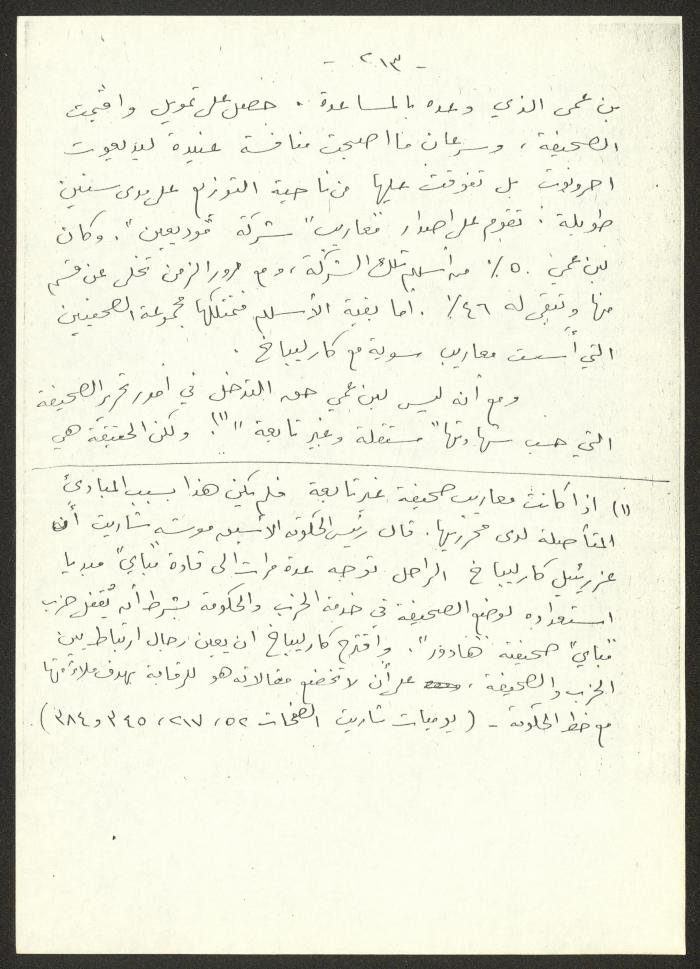 - ٢١٣ -
بن عمي الذي وعده بالمساعدة . حصل على تمويل واقيمت
الصحيفة ، وسرعان ما اصبحت منافسة عنيدة ليديعوت
احرونوت بل تفوقت عليها من ناحية التوزيع على مدى سنين
طويلة . تقوم على اصدار "معاريب" شركة "موديعين" . وكان
لبن عمي ٥٠٪ من أسهم تلك الشركة ، ومع مرور الزمن تخلى عن قسم
منها وتبقى له ٤٦٪ . أما بقية الأسهم فتمتلكها مجموعة الصحفيين
التي أسست معاريب سوية مع كارليباخ .
ومع أنه ليس لبن عمي حق التدخل في أمور تحرير الصحيفة
التي حسب شهادتها "مستقلة وغير تابعة" "(١) . ولكن الحقيقة هي
(١) اذا كانت معاريب صحيفة غير تابعة فلم يكن هذا بسبب المبادئ
المتأصلة لدى محرريها . قال رئيس الحكومة الأسبق موشه شاريت أن
عزريئيل كارليباخ الراحل توجه عدة مرات الى قادة "مباي" مبديا
استعداده لوضع الصحيفة في خدمة الحزب والحكومة بشرط أن يُقفل حزب
"مباي" صحيفة "هادور" . واقترح كارليباخ ان يعين رجال ارتباط بين
الحزب والصحيفة ، على أن لا تخضع مقالاته هو للرقابة بهدف ملاءمتها
مع خط الحكومة - ( يوميات شاريت الصفحات ٥٢، ٢١٧، ٣٤٥ و ٣٨٤ )